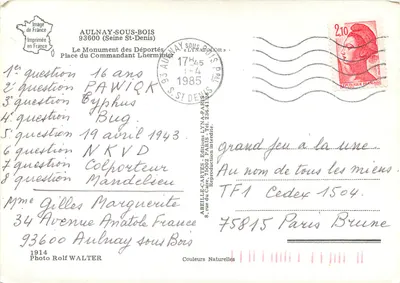 Image
de
France
Imprimée
en
France
AULNAY-SOUS-BOIS
93600 (Seine St-Denis)
Le Monument des Déportés
Place du Commandant Lherminier
1er question 16 ans
2e question PAWIQK
3e question Typhus
4e question Bug.
5 question 19 avril 1943.
6 question NKVD
7 question Colporteur
8 question Mandelseu
Mme Gilles Marguerite
34 Avenue Anatole France
93600 Aulnay sous Bois
1914
Photo Rolf WALTER
Couleurs Naturelles
ABEILLE-CARTES
Reproduction interdite
93 AULNAY SOUS BOIS PAL
17H45
1-4
1985
S. ST DENIS
2,10
grand feu à la une.
Au nom de tous les miens.
TF1 Cedex 1504.
75815 Paris Brune